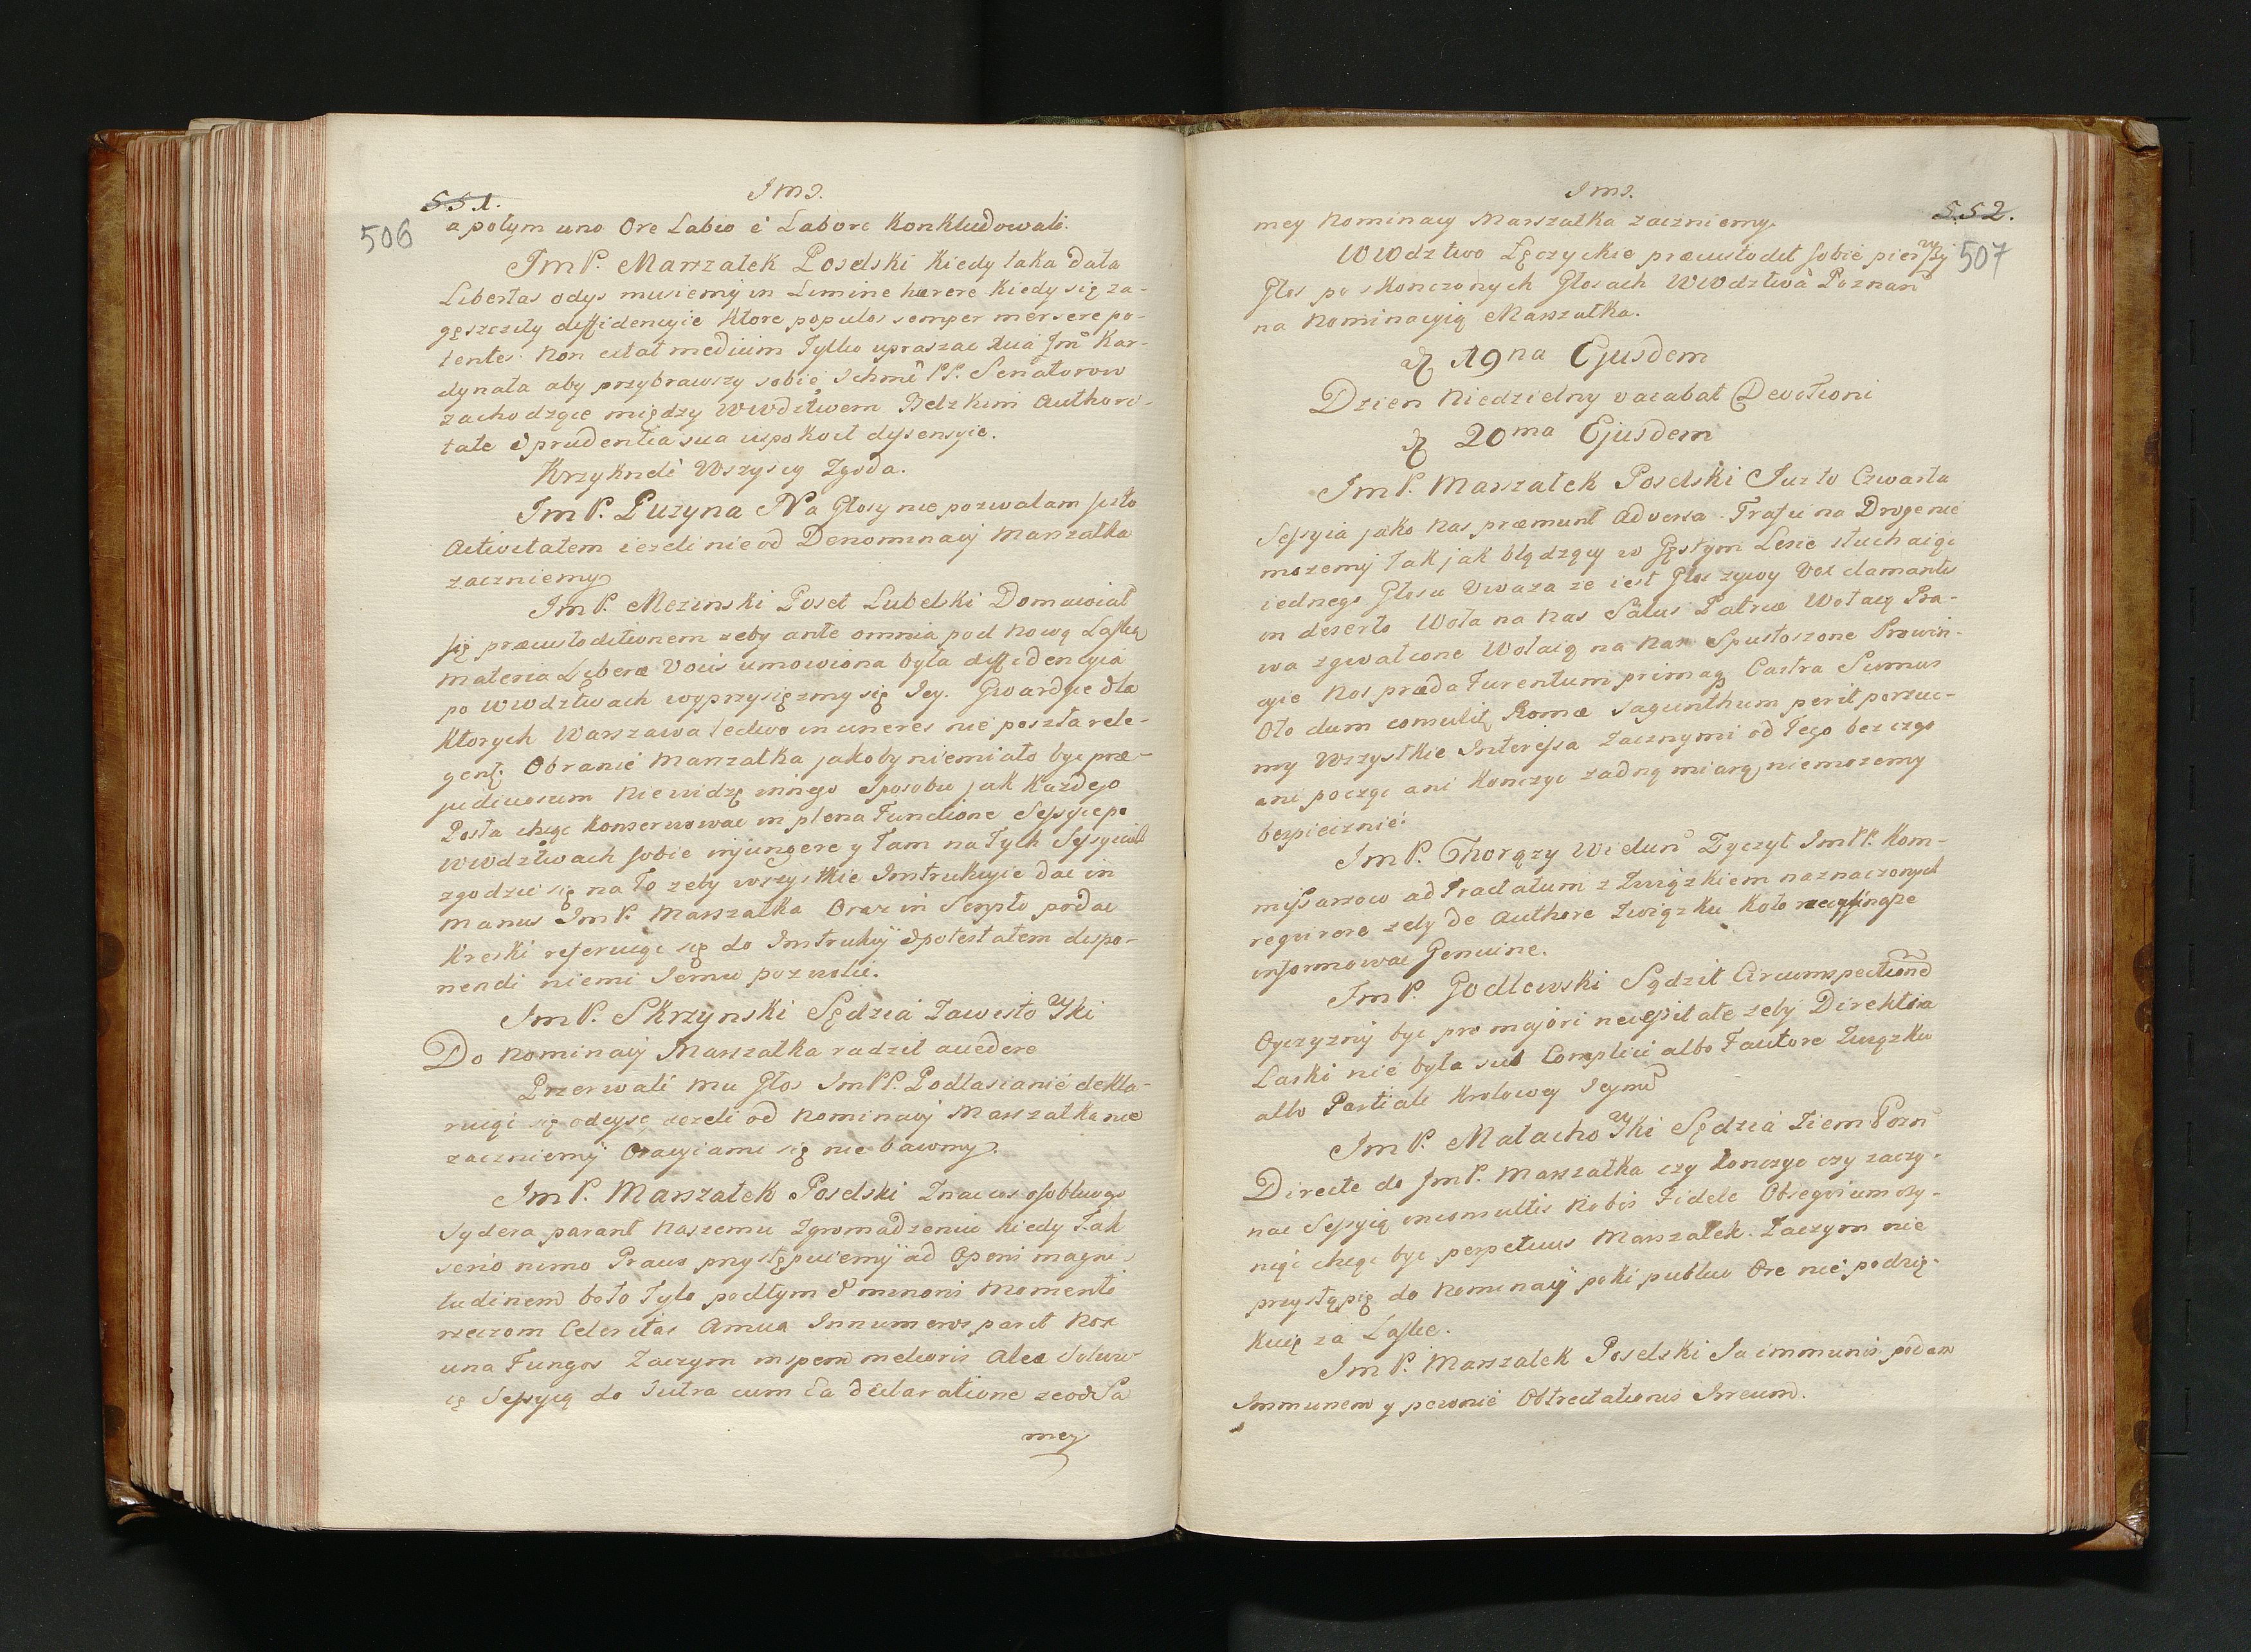 Im2.
551.
506
a potym uno Ore Labio é Labore Konkludowali.
Im P. Marszałek Poselski Kiedy taka data
Libertas odys musiemy in Limine hærere Kiedy się za-
gęszczały diffidencyie Ktore populos semper mersere po-
tentes. Non extat medium Tylko upraszac Xcia Jm Kar-
dynała aby przybrawszy sobie Ichmć PP. Senatorow
zachodzące między Wwdztwem Bełzkim Authori-
tate & prudentia sua uspokoił dysensyie.
Krzyknęli Wszyscy Zgoda.
Im P. Puzyna Na Głosy nie pozwalam
Activitatem ieżeli nie od Denominacij Marszałka
zaczniemy
Im P. Mezinski Poseł Lubelski Domawiał
się præcustoditionem zeby ante omnia pod nową Laską
materia Liberæ Vocis umowiona była diffidencyia
po Wwdztwach wyprzysięzmy się Iey. Gwardye dla
Ktorych Warszawa ledwo in cineres nie poszła rele-
gent. Obranie Marszałka jakoby niemiało byc præ-
judiciosum Niewidzę innego Sposobu jak Kazdego
Posła chcąc Konserwowac in plena Functione Sessyie po
Wwdztwach sobie injungere y Tam na Tych Sessyiach
zgodzic się na To zeby wszystkie Instrukcyie dac in
manus Im P. Marszałka Oraz in Scripto podac
Kreski referuiąc się do Instrukcij & potestatem dispo-
nendi niemi Iemu pozwolic.
Im P. Skrzynski Sędzia Zawisko Ski
Do Nominacij Marszałka radził accedere
Przerwali mu Głos Im PP. Podlasianie dekla-
ruiąc się odeysc, iezeli od Nominacij Marszałka nie
zaczniemy Oracyiami się nie bawmy.
Im P. Marszałek Poselski Znac cos osobliwego
Sydera parant Naszemu Zgromadzeniu Kiedy Tak
serio nimo Prawo przystępuiemy ad Operis magni-
tudinem bo To Tylo podłym & minoris Momenti
rzeczom Celeritas Amica Innumeros parit Nox
una Fungos Zaczym in spem melioris Aleæ Solwu-
ię Sessyią do Iutra cum Ea declaratione ze od Sa
mey

Im2.
552.
507
mey Nominacij Marszałka zaczniemy.
WWdztwo Lęczyckie præcustodit sobie pierwszy
Głos po skonczonych Głosach WWdztwa Poznan
na Nominacyią Marszałka.
D 19na Ejusdem
Dzien Niedzielny vacabat Devotioni
D 20ma Ejusdem
Im P. Marszałek Poselski Iuz to Czwarta
Sessyia jako Nas præmunt Adversa. Trafic na Drogę nie
mozemy Tak jak błądzący w Gęstym Lesie słuchaiąc
iednego Głosu Uwaza ze iest Głos zywy Vox clamantis
in deserto Woła na Nas Salus Patriæ Wołaią Pra-
wa zgwałcone Wołaią na Nas Spustoszone Prowin-
cyie Nos præda Furentum primaq Castra Sumus
Oto dum consulit Romæ Sagunthum perit porzuc-
my Wszystkie Interessa Zacznymi od Tego bez czego
ani począc ani Konczyc zadną miarą niemozemy
bezpiecznie.
Im P. Chorązy Wielun Zyczył Im PP. Kom-
missarzow ad Tractatum z Związkiem naznaczonych
requirere zeby de Authore Związku Koło
informowac Genuine.
Im P. Godlewski Sądził Circumspectionē
Oyczyzny byc pro majori necessitate zeby Direktia
Laski nie była sub Complici albo Fautore Związku
albo Partiali Krolowey Ieymē
Im P. Małacho Ski Sędzia Ziem Pozn
Directe do Im P. Marszałka czy Konczyc czy zaczy-
nac Sessyią inconsultis Nobis Fidele Obsequium czy-
niąc chcąc byc perpetuus Marszałek. Zaczym nie
przystąpię do Nominacij poki publico Ore nie podzię-
Kuię za Laskę.
Im P. Marszałek Poselski Ia immunis podam
Immunem y pewnie Obtrectationis Inreum.